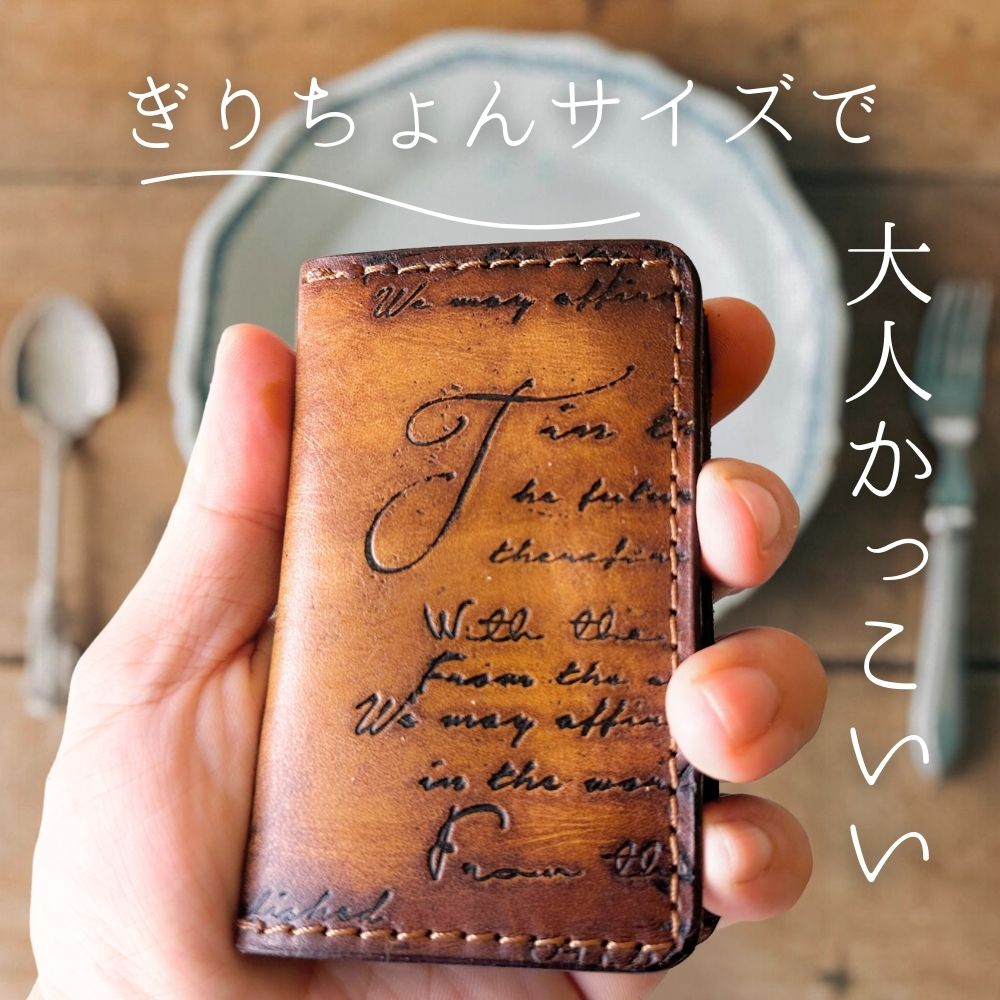 ぎりちょんサイズで
大人かっこいい
We may affirm
T in t
he future
therefore
With the
From the a
We may affir
in the worl
From the
lished